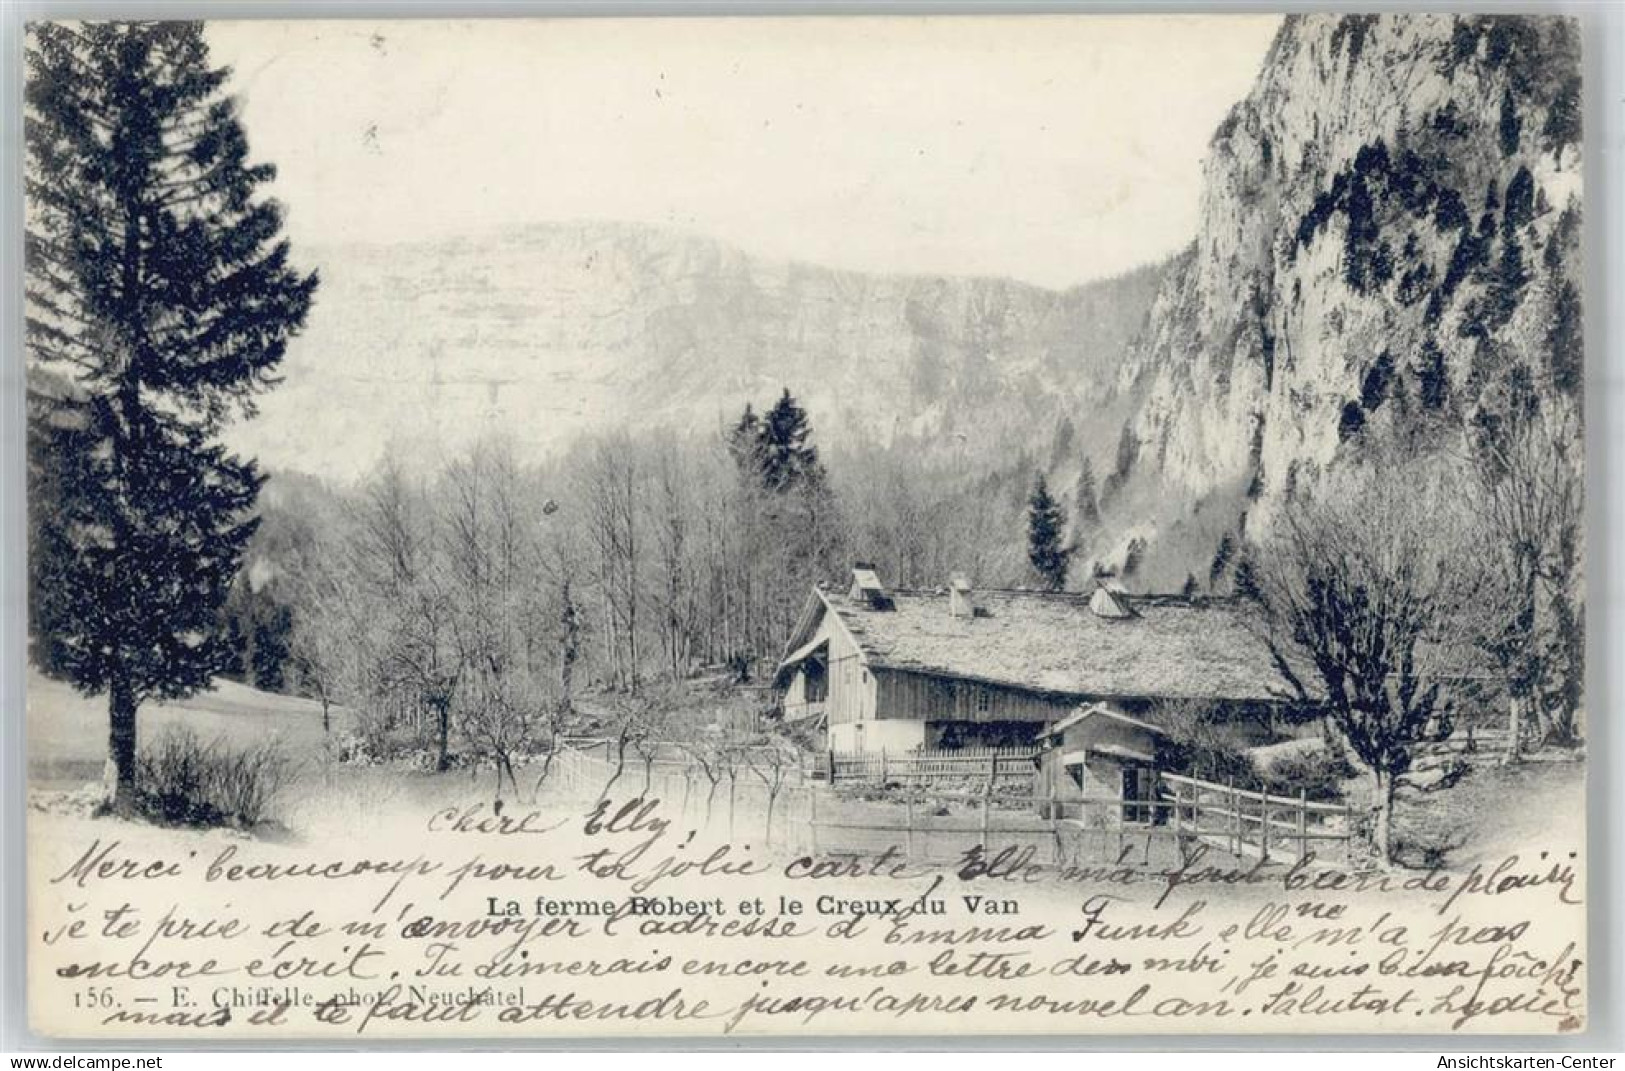 Chère Elly,
Merci beaucoup pour ta jolie carte, Elle m'a fait bien de plaisir
La ferme Robert et le Creux du Van
je te prie de m'envoyer l'adresse d'Emma Funk elle ne m'a pas
encore écrit. Tu aimerais encore une lettre de moi, je suis bien fâchée
156. — E. Chiffelle, phot. Neuchâtel
mais il te faut attendre jusqu'apres nouvel an. Salutat. Lydie
Ansichtskarten-Center